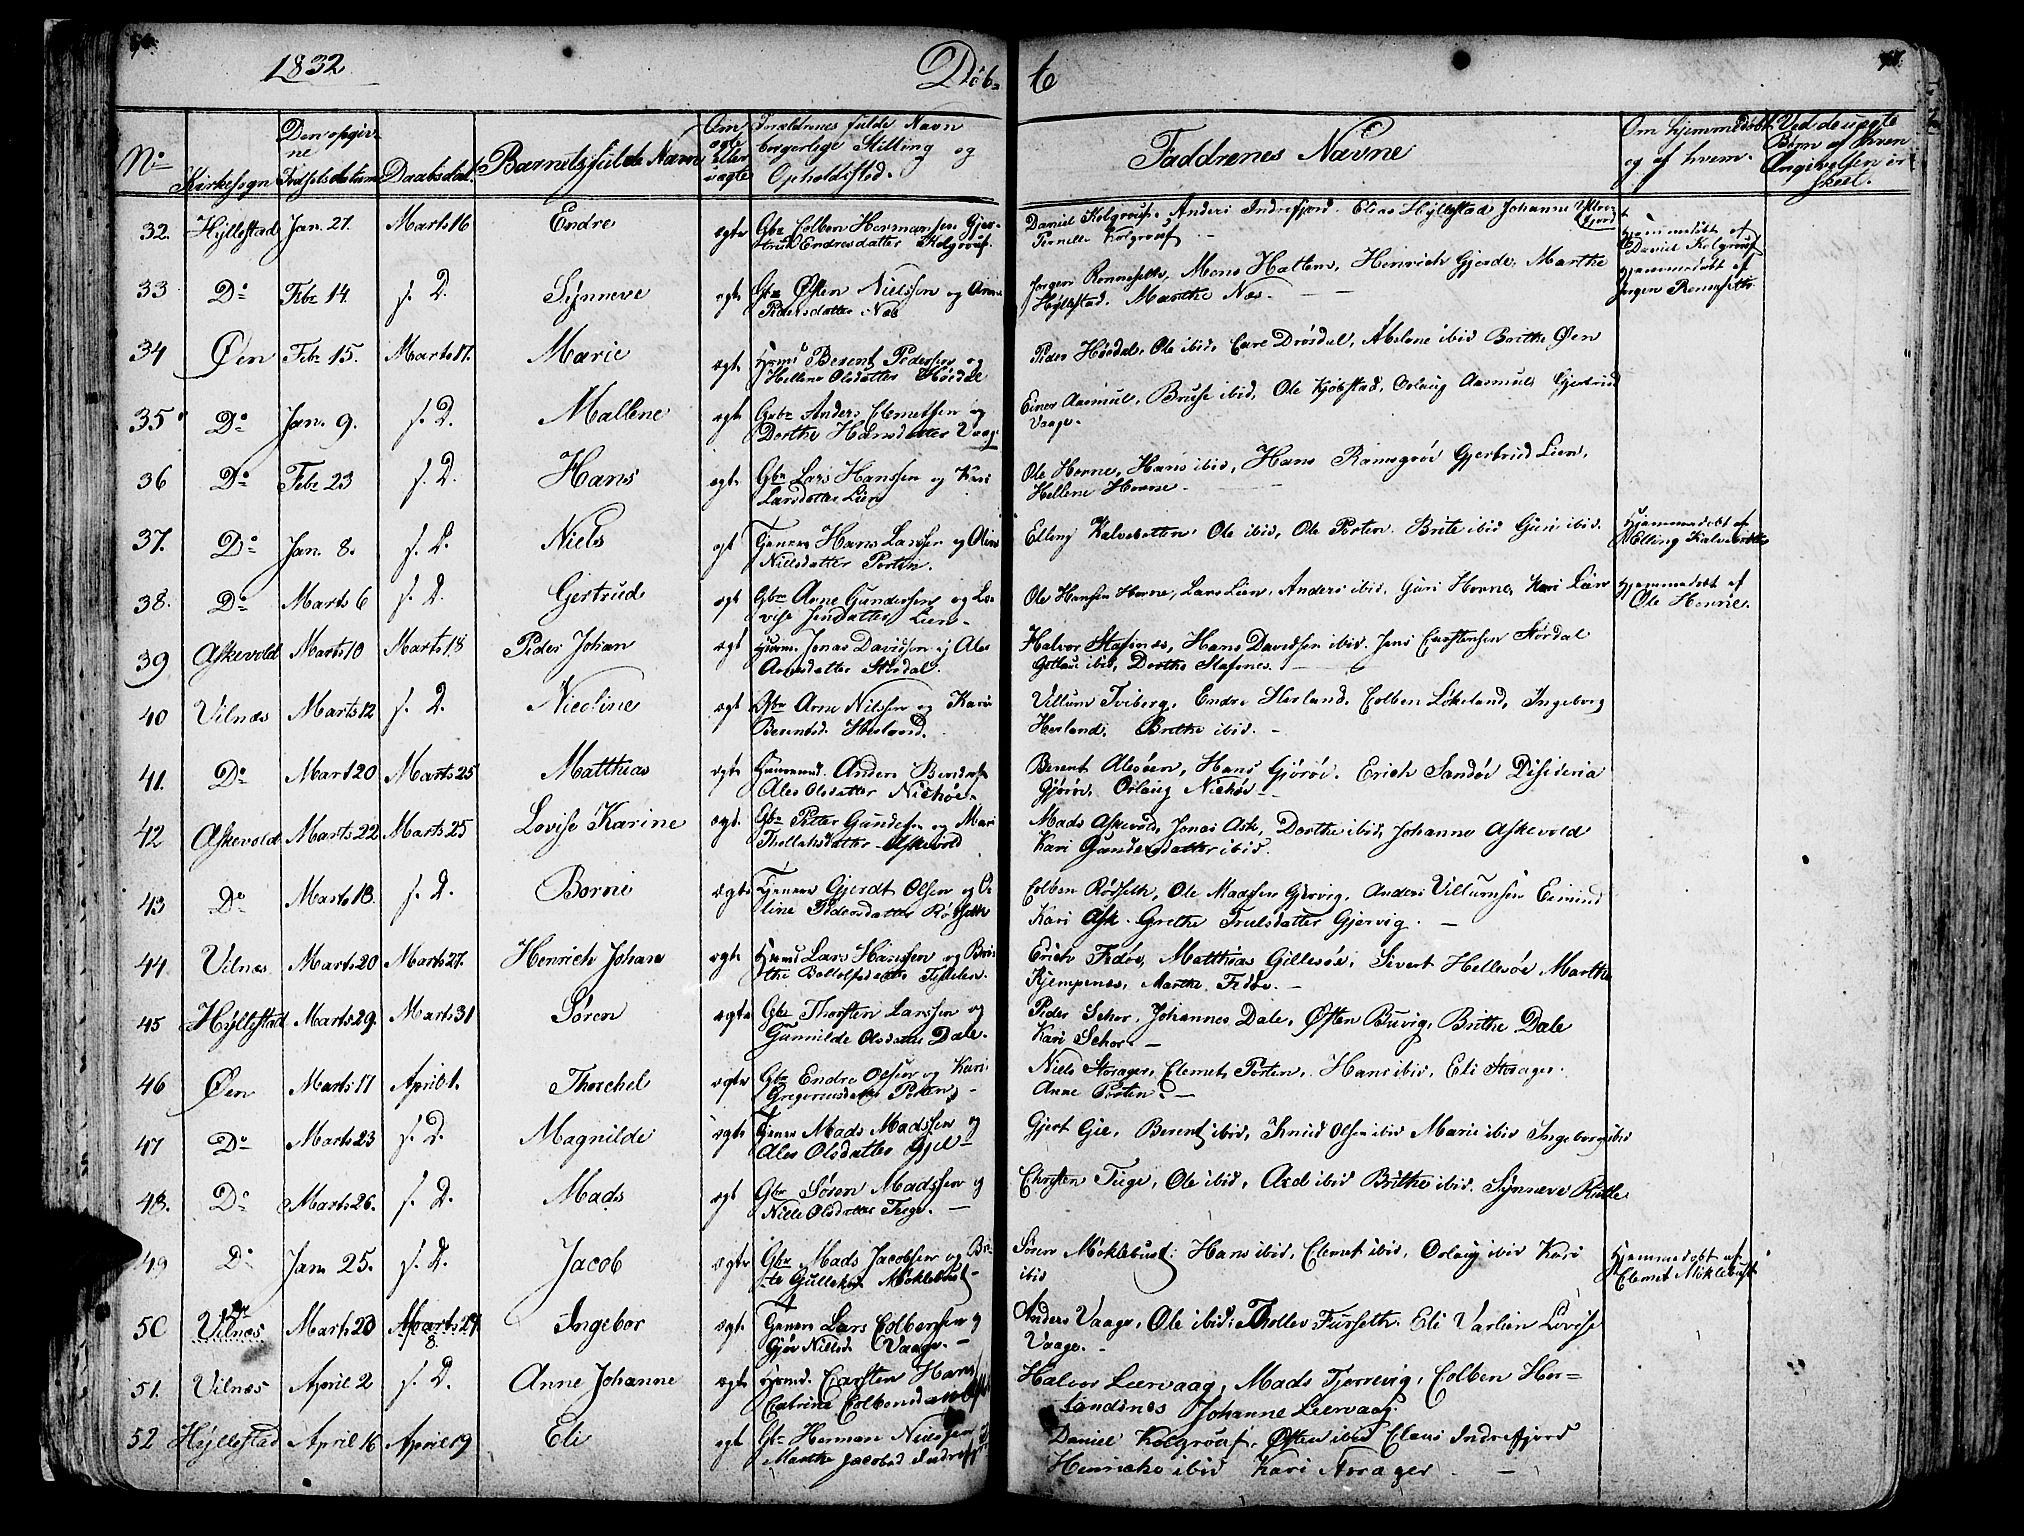 1832
Döbte
No
Kirkesogn
Den opgivne Fødselsdatum
Daabsdat.
Barnets fulde Navn
Om ægte eller uægte
Forældrenes fulde Navn borgerlige Stilling og Opholdsted.
Faddrenes Navne
Om hjemmedøbt og af hvem.
Ved de uægte Børn af hvem Angivelsen er skeet.
32. Hyllestad Jan. 27. Marts 16 Endre ægte Gbr Colben Hermansen Gjertrud Endresdatter Kolgrouf.
Daniel Kolgrouf, Anders Indrefjord. Elias Hyllestad Johanne Pernille Kolgrouf
Hjemmedøbt af David Kolgrouf
33 Do Febr 14. s. D. Synneve ægte Gbr Østen Nielssen og Anne Pedersdatter Næs
Jørgen Mons Hatlem, Henrich Gjerde, Marthe Hyllestad. Marthe Næs.
Hjemmedøbt af Jørgen
34 Øen Febr 15. Marts 17. Marie ægte Huusmd Berent Pedersen og Hellene Olsdatter Høidal
Peder Høidal, Ole ibid, Abelone ibid Brithe Øen
35 Do Jan. 9. s. D. Mallene ægte Gbr Anders Clemetsen og Dorthe Hansdatter Vaage
Einer Aasmul, Bruse ibid, Ole Kjøbstad, Orlaug Aasmul, Gjertrud Vaage.
36 Do Febr 23 s. D. Hans ægte Gbr Lars Hanssen og Kari Larsdatter Lien
Ole Horne, Hans ibid, Hans Ramsgrøv Gjertrud Lien, Hellene Horne
37. Do Jan. 8. s. D. Niels ægt Tjenere Hans Larssen og Oline Nielsdatter Porten.
Elling Kalvebotten, Ole ibid, Ole Porten. Brite ibid Guri ibid.
Hjemmedøbt af Elling Kalvebotten
38. Do Marts 6 s. D. Gertrud ægt Gbr Arne Gundersen og Lovise Jensdatter Lien.
Ole Hansen Horne, Lars Lien, Anders ibid, Guri Horne, Kari Lien
Hjemmedøbt af Ole Horne.
39 Askevold Marts 10 Marts 18 Peder Johan ægt Huusm. Jonas Davidsen og Ales Arnesdatter Stordal.
Halvor Stafsnes, Hans Davidsen ibid. Jens Carstensen Stordal Gotlau ibid, Dorthe Stafsnes.
40 Vilnæs Marts 12 s. D. Nicoline ægt Gbr Arne Nilsen og Kari Berentsd. Herland.
Villum Tviberg, Endre Herland, Colben Løkeland, Ingeborg Herland. Brithe ibid.
41. Do Mart 20 Marts 25 Matthias ægte Huusmd. Anders Ales Olsdatter Nichøe.
Berent Alesøen, Hans Gjørøe, Erich Sandøe Desideria Gjørøe, Orlaug Nichøe
42 Askevold Marts 22 Marts 25 Lovise Karine ægt. Gbr Peter Gundersen og Mari Thollaksdatter Askevold
Mads Askevold, Jonas Ask, Dorthe ibid, Johanne Askevold Kari Gundersdatter ibid.
43 Do Marts 18. s. D. Borni ægte Tjenere Gjerdt Olsen og Oline Pedersdatter Rødseth
Colben Rødseth, Ole Madssen Gjervig, Anders Villumsen Kari Ask. Grethe Trulsdatter Gjervig.
44 Vilnæs Marts 20 Marts 27. Henrich Johan ægte Huusmd Lars Hanssen og Brithe Bollolfsdatter
Erich Fedøe, Matthias Gillesøe, Sivert Hellesøe Marthe Kjempenes, Marthe Fedøe.
45 Hyllestad Marts 29. Marts 31 Søren ægte Gbr Thorsten Larssen og Gunnilde Olsdatter Dale.
Peder Schor, Johannes Dale, Østen Buvig, Brithe Dale Kari Schor.
46 Øen Marts 17 April 1. Thorchel ægte Gbr Endre Olsen og Kari Gregoriusdatter Porten
Niels Storager, Clemet Porten, Hans ibid, Eli Storager. Anne Porten.
47 Do Marts 23 s. D. Magnilde ægte Tjenere Mads Madssen og Ales Olsdatter Gjel
Gjert Giel, Berent ibid, Knud Olsen ibid Marie ibid Ingeborg ibid
48. Do Marts 26. s. D. Mads ægt Gbr Søren Madssen og Nille Olsdatter Tuge.
Christen Tuge, Ole ibid, Brithe ibid. Synneve
49 Do Jan. 25. s. D. Jacob ægte Gbr Mads Jacobsen og Møklebust
Søren Møklebust, Hans ibid, Clemet ibid, Orlaug ibid Kari ibid
Hjemmedøbt af Clemet Møklebust
50 Vilnes Marts 20 Marts 27 8 Ingebor ægt. Tjenere Lars Colbensen og Gjør Nielsd. Vaage.
Anders Vaage, Ole ibid, Thollev Furseth, Eli Varlien Lovise Vaage.
51. Vilnæs April 2 s. D. Anne Johanne ægte Huusmd. Carsten Hans Catrine Colbensdatter
Halvor Leervaag, Mads Tjervig, Colben Herlandsnes Johanne Leervaag.
52 Hyllestad April 16 April 19 Eli ægt Gbr Herman Marthe Jacobsd
Daniel Kolgrouf, Østen ibid Claus Indrefjord Henriche ibid Kari Storager